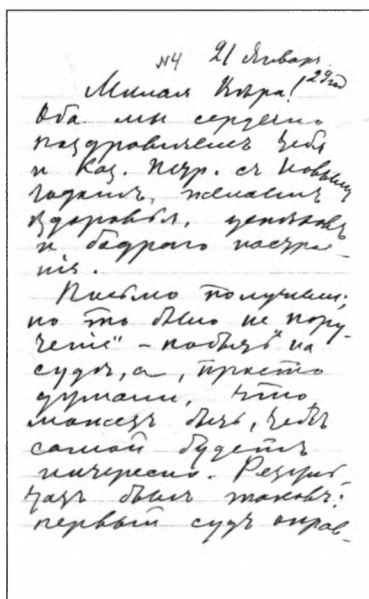 №4 21 Января
29 год
Милая Вѣра!
Оба мы сердечно
поздравляемъ тебя
и Каз. Петр. съ Новымъ
годомъ, желаемъ
здоровья, успѣховъ
и бодраго настрое-
нія.
Письмо получили;
но то было не „пору-
ченіе“ – побыть на
судѣ, а, просто
думали, что
можетъ быть, тебѣ
самой будетъ
интересно. Резуль-
татъ былъ таковъ:
первый судъ оправ-